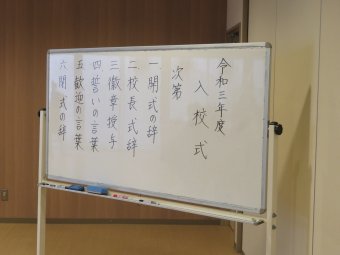 令和三年度
入校式
次第
一開式の辞
二校長式辞
三徽章授与
四誓いの言葉
五歓迎の言葉
六閉式の辞